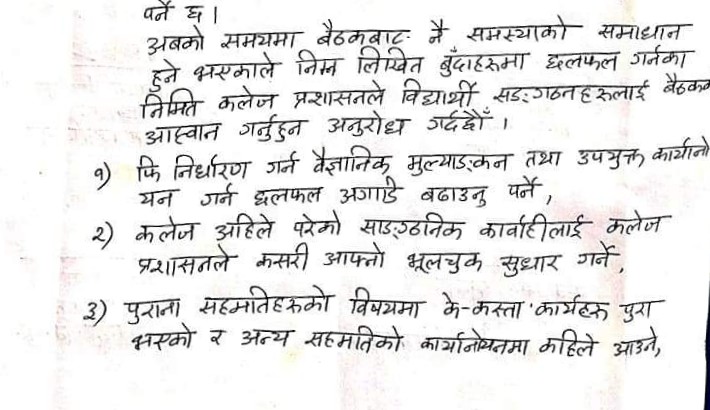 पर्ने छ ।
अबको समयमा बैठकबाट नै समस्याको समाधान
हुने भएकाले निम्न लिखित बुँदाहरुमा छलफल गर्नका
निमित्त कलेज प्रशासनले विद्यार्थी सङ्गठनहरुलाई बैठकमा
आह्वान गर्नुहुन अनुरोध गर्दछौँ ।
१) फि निर्धारण गर्न वैज्ञानिक मुल्याङ्कन तथा उपयुक्त कार्यानो
यन गर्न छलफल अगाडि बढाउनु पर्ने,
२) कलेज अहिले परेको साङ्गठनिक कार्वाहीलाई कलेज
प्रशासनले कसरी आफ्नो भूलचुक सुधार गर्ने,
३) पुराना सहमतिहरुको विषयमा के-कस्ता कार्यहरु पुरा
भएको र अन्य सहमतिको कार्यानोयनमा कहिले आउने,